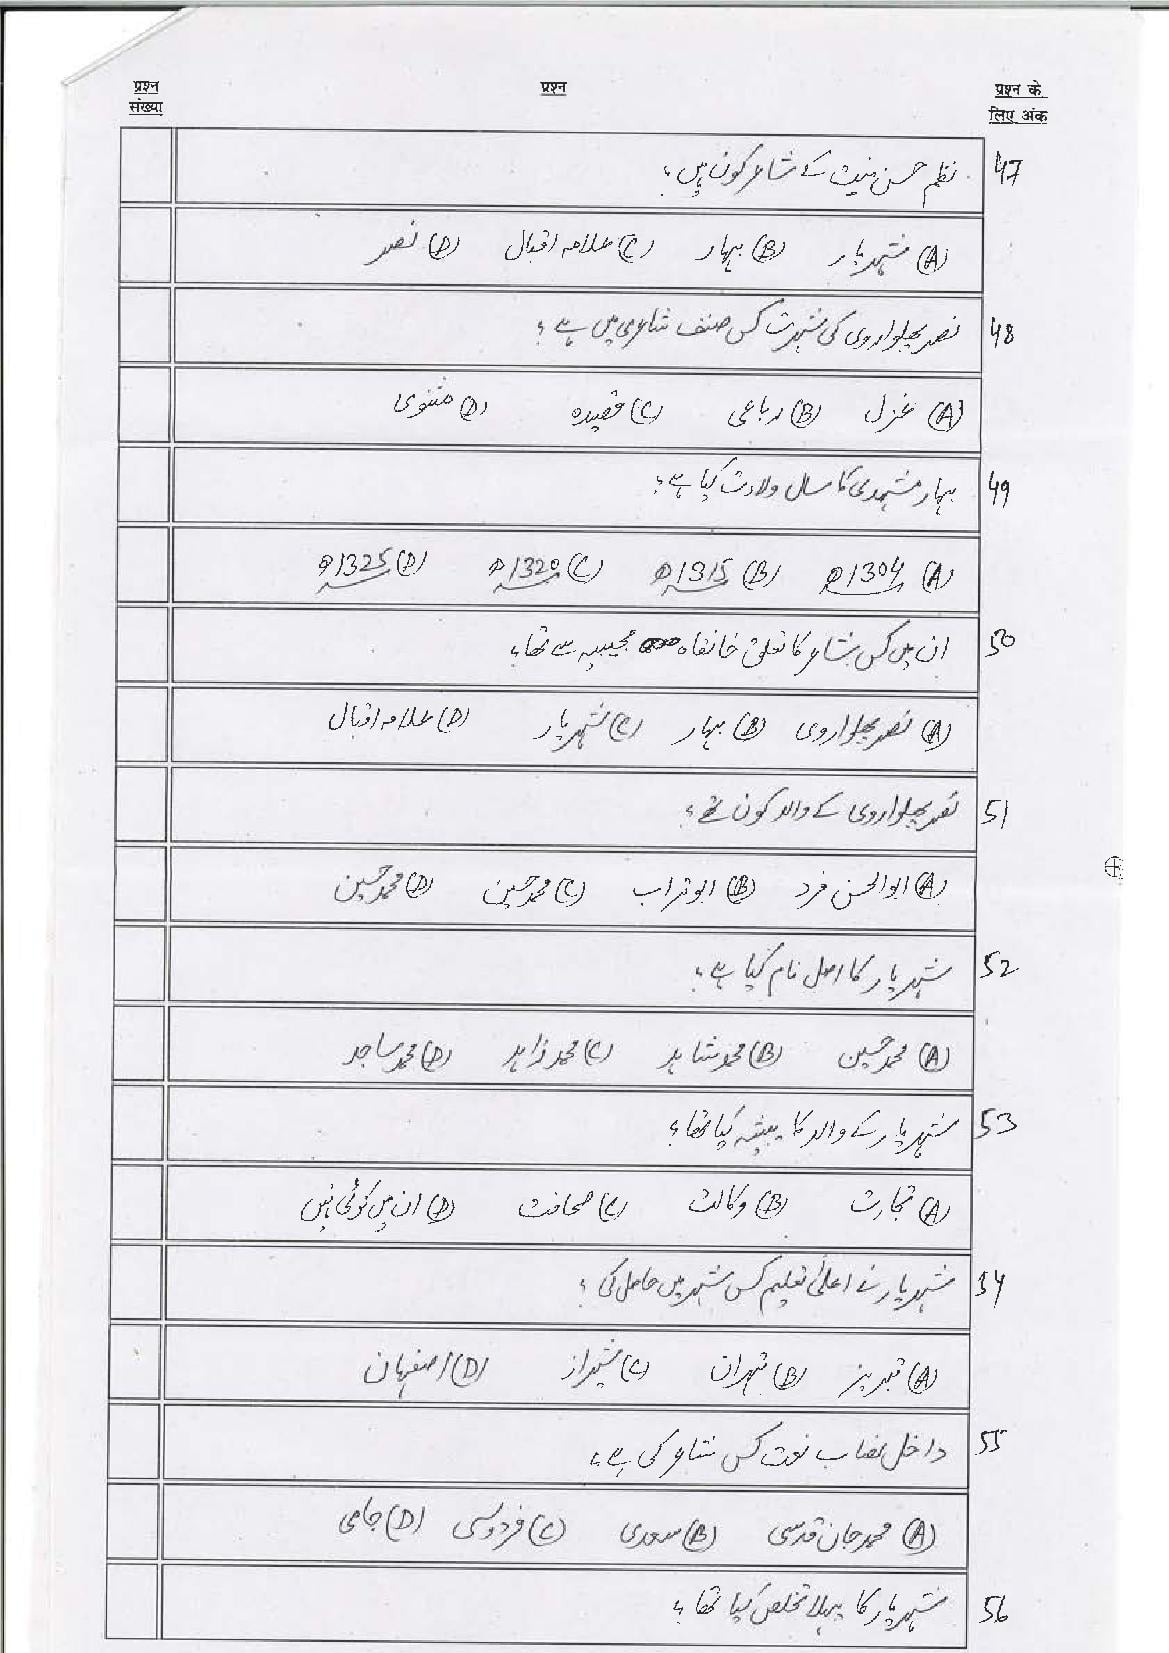 प्रश्न संख्या
प्रश्न
प्रश्न के लिए अंक
47 نظم حسن نیت کے شاعر کون ہیں؟
(A) شہریار (B) بہار (C) علامہ اقبال (D) نصر
48 نصر پھلواروی کی شہرت کس صنف شاعری میں ہے؟
(A) غزل (B) رباعی (C) قصیدہ (D) مثنوی
49 بہار مشہدی کا سال ولادت کیا ہے؟
(A) 1304ھ (B) 1315ھ (C) 1320ھ (D) 1325ھ
50 ان میں کس شاعر کا تعلق خانقاہ مجیبیہ سے تھا؟
(A) نصر پھلواروی (B) بہار (C) شہریار (D) علامہ اقبال
51 نصر پھلواروی کے والد کون تھے؟
(A) ابوالحسن فرد (B) ابو تراب (C) محمد حسین (D) محمد حسین
52 شہریار کا اصل نام کیا ہے؟
(A) محمد حسین (B) محمد شاہد (C) محمد زاہد (D) محمد ساجد
53 شہریار کے والد کا پیشہ کیا تھا؟
(A) تجارت (B) وکالت (C) صحافت (D) ان میں کوئی نہیں
54 شہریار نے اعلیٰ تعلیم کس شہر میں حاصل کی؟
(A) تبریز (B) تہران (C) شیراز (D) اصفہان
55 داخل نصاب نعت کس شاعر کی ہے؟
(A) محمد جان قدسی (B) سعدی (C) فردوسی (D) جامی
56 شہریار کا پہلا تخلص کیا تھا؟